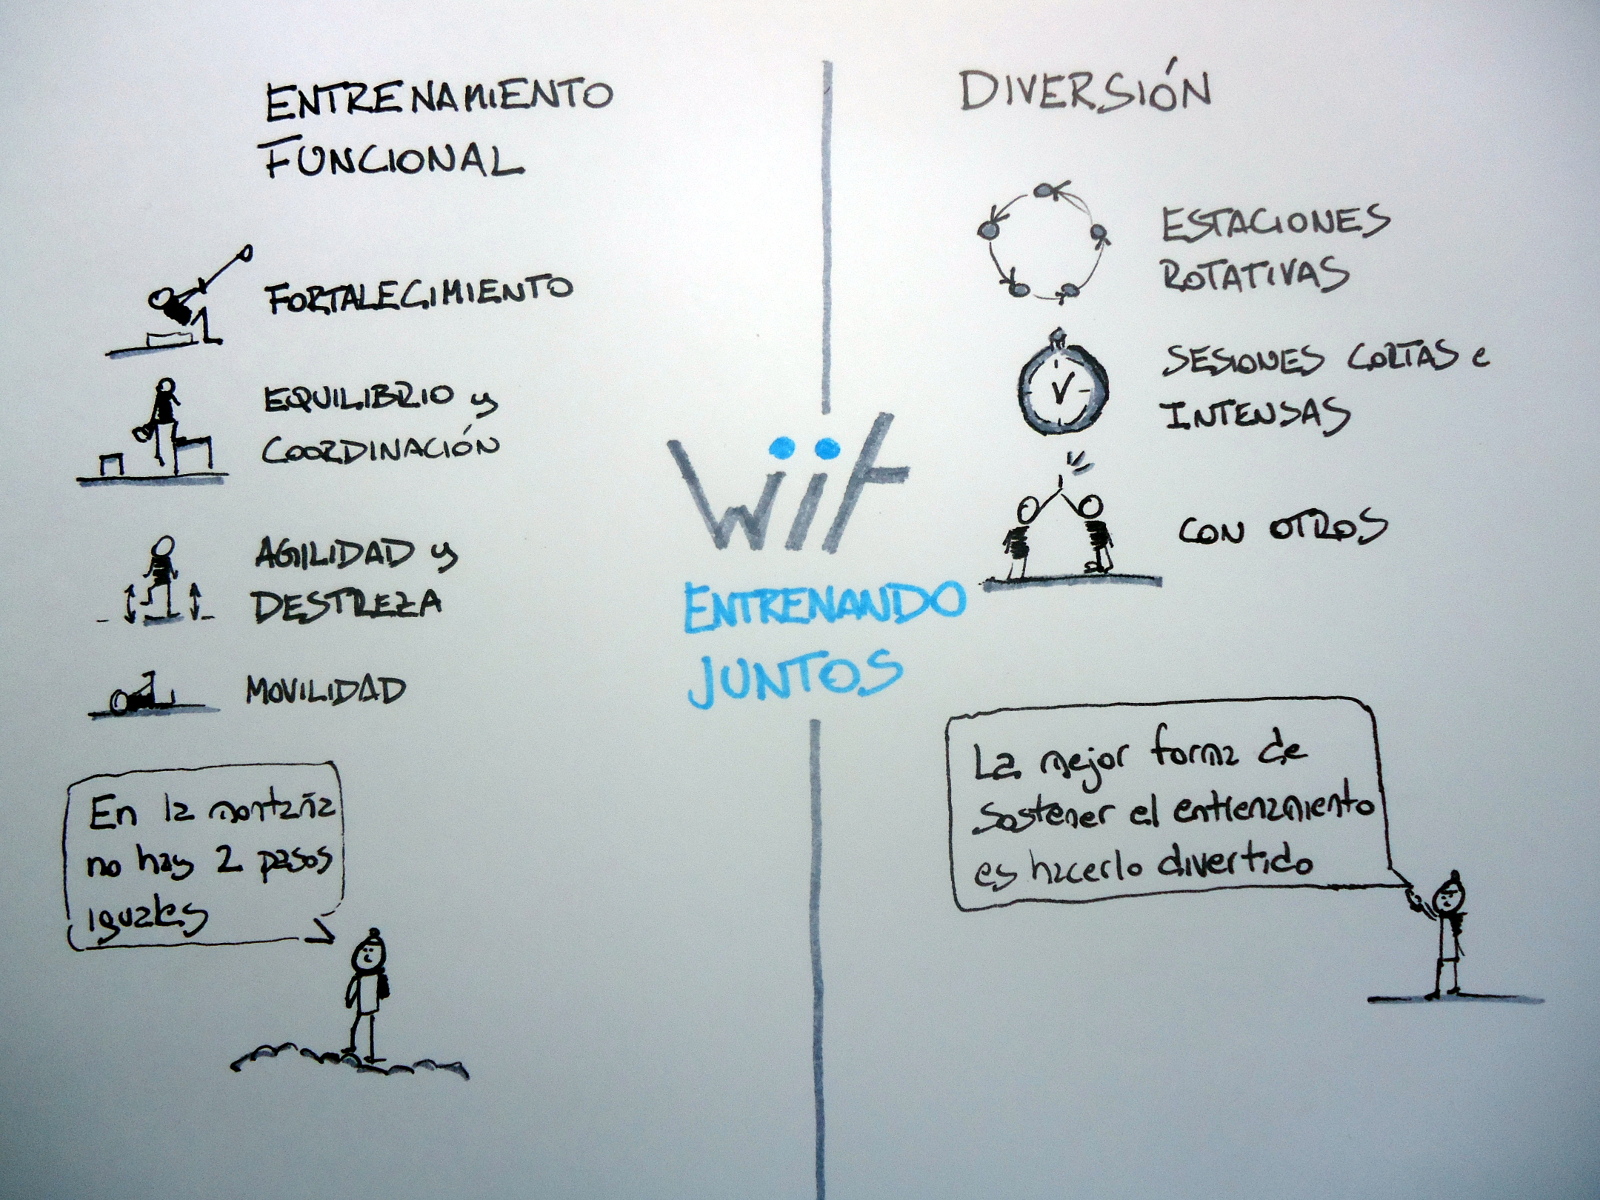 ENTRENAMIENTO
FUNCIONAL
FORTALECIMIENTO
EQUILIBRIO y
COORDINACIÓN
AGILIDAD y
DESTREZA
MOVILIDAD
En la montaña
no hay 2 pasos
iguales
wiit
ENTRENANDO
JUNTOS
DIVERSIÓN
ESTACIONES
ROTATIVAS
SESIONES CORTAS e
INTENSAS
CON OTROS
La mejor forma de
sostener el entrenamiento
es hacerlo divertido